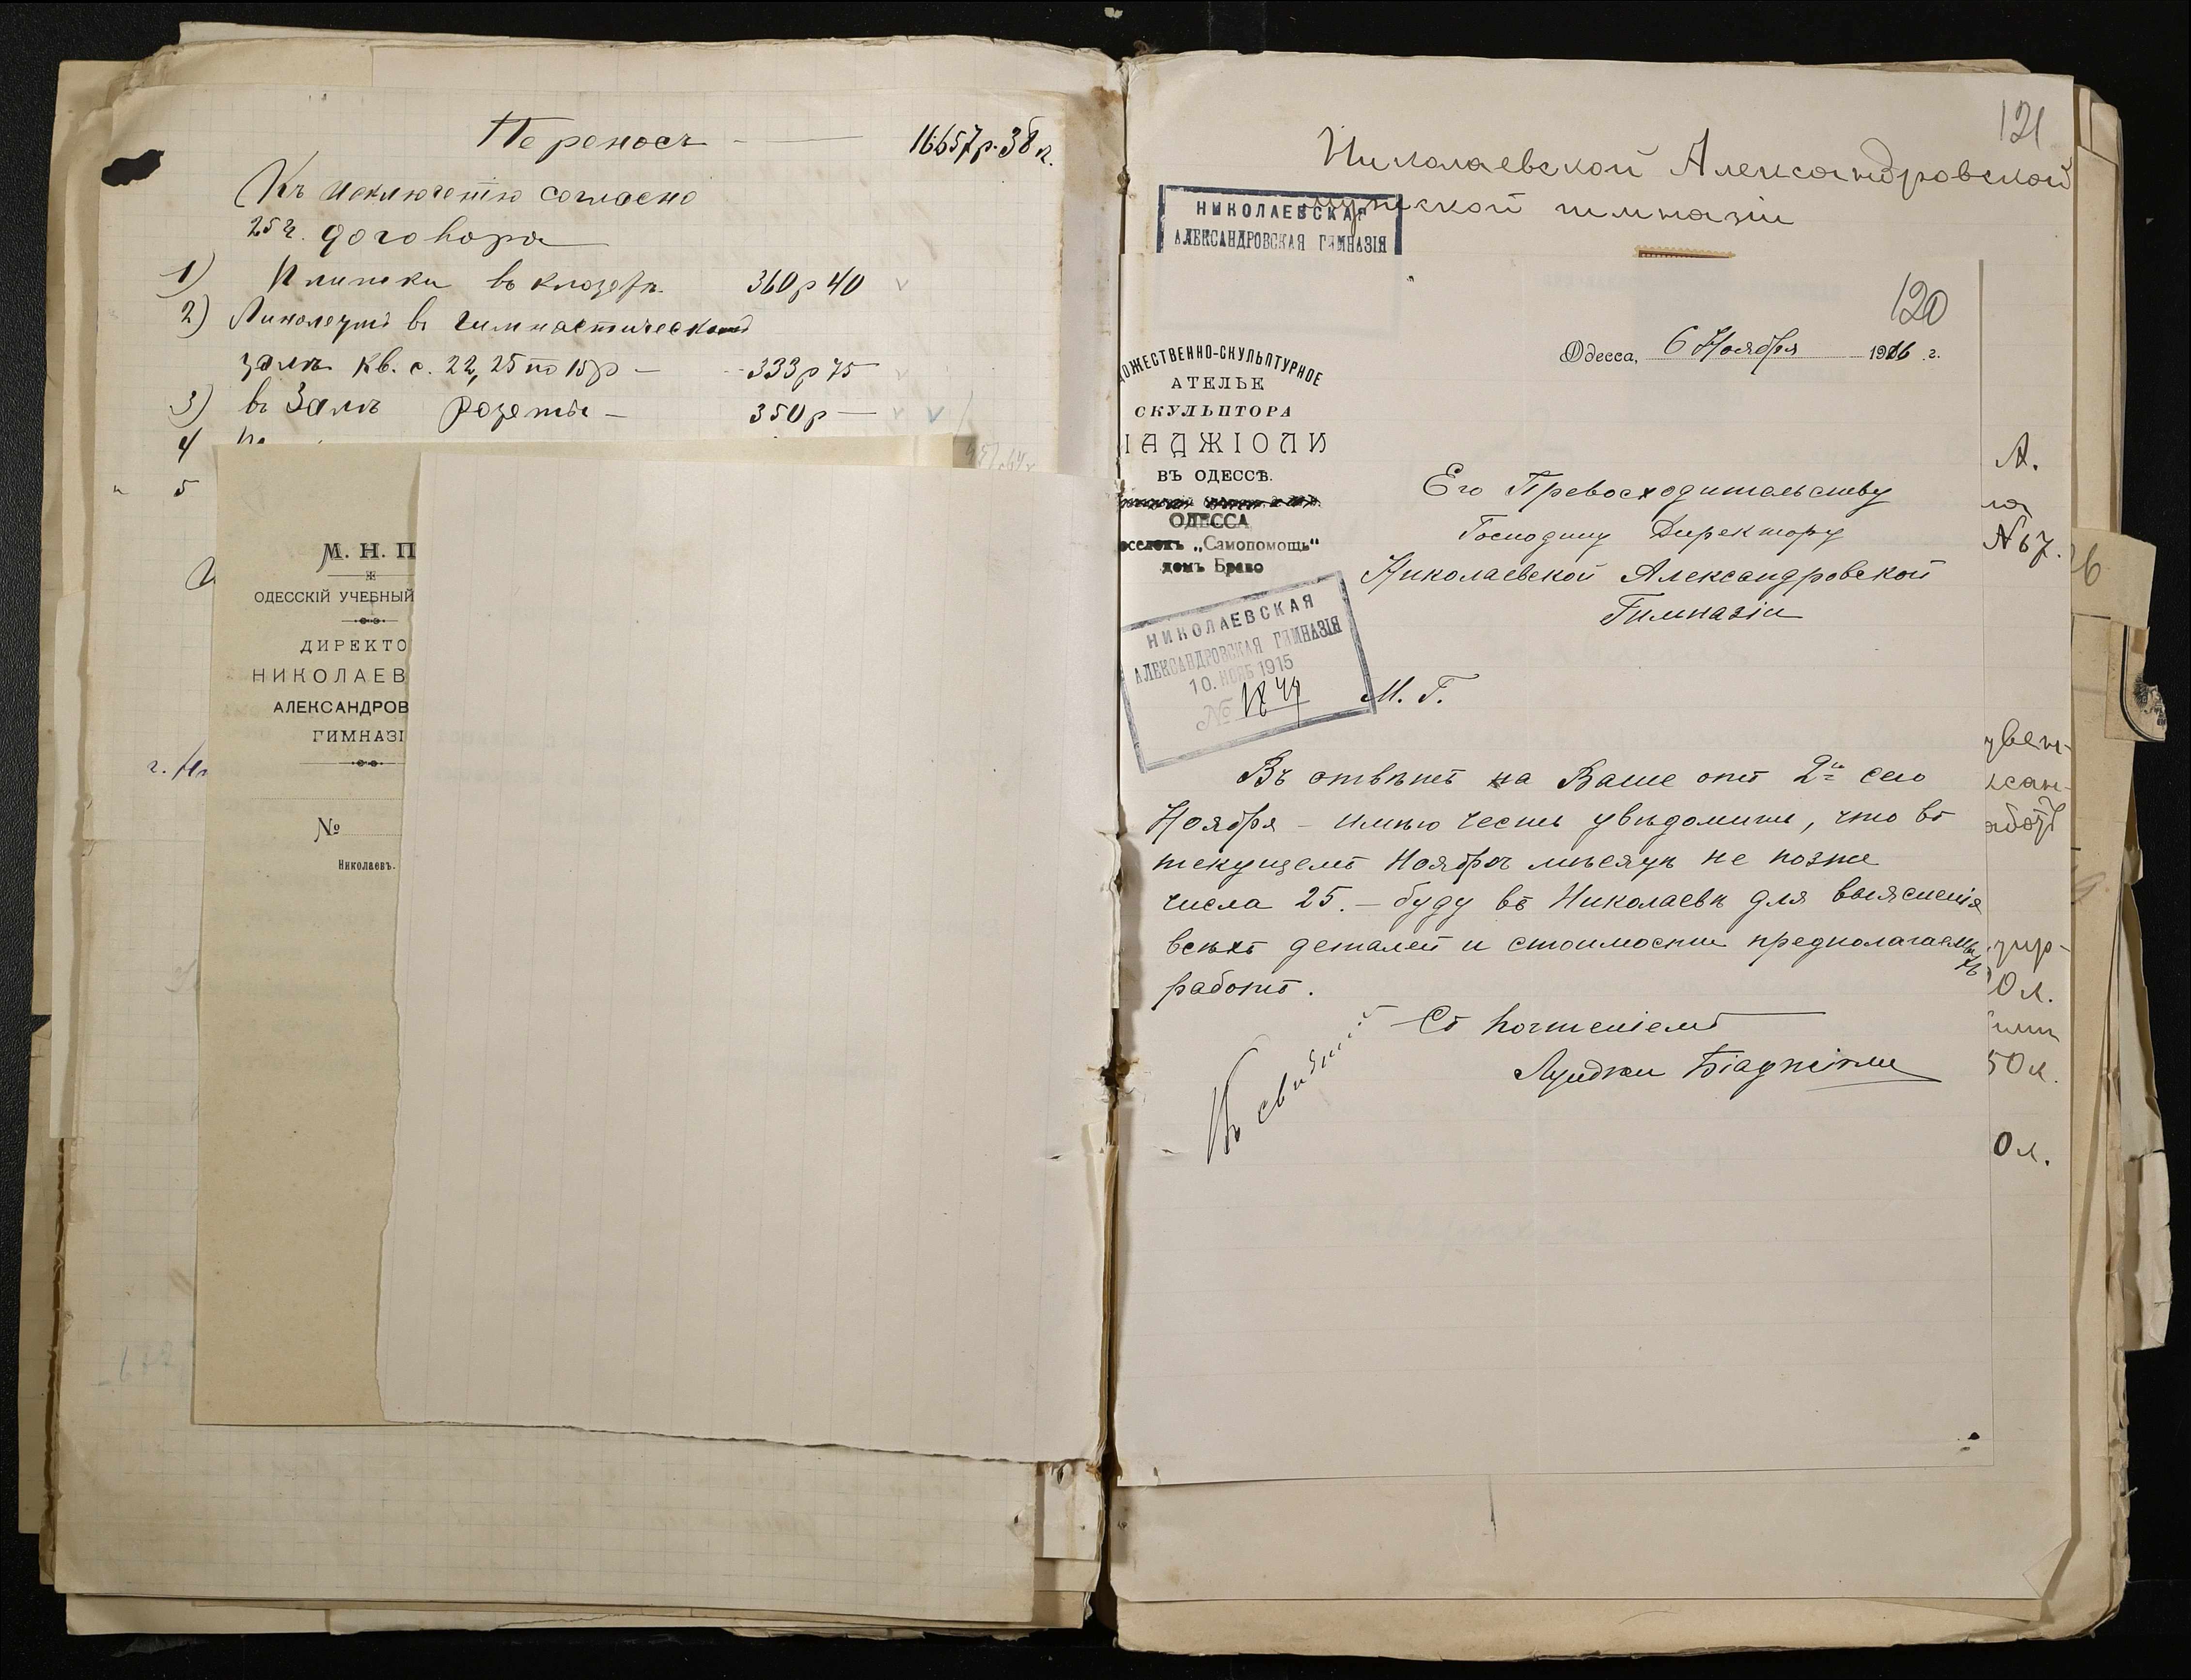 Переносъ — 16657 р. 38 к.
Къ исключенію согласно
25 ч. договора
1) Плитки въ клозетѣ 360 р 40
2) Линолеумъ въ гимнастическомъ
залѣ кв. с. 22,25 по 15 р — 333 р 75
3) въ Залѣ розетки — 350 р —
4
5
М. Н. П
ОДЕССКІЙ УЧЕБНЫЙ
ДИРЕКТО
НИКОЛАЕВ
АЛЕКСАНДРОВ
ГИМНАЗІ
№
Николаевъ.
121
Николаевской Александровской
мужской гимназіи
НИКОЛАЕВСКАЯ
АЛЕКСАНДРОВСКАЯ ГИМНАЗІЯ
120
Одесса, 6 Ноября 1916 г.
ОЖЕСТВЕННО-СКУЛЬПТУРНОЕ
АТЕЛЬЕ
СКУЛЬПТОРА
ІАДЖІОЛИ
ВЪ ОДЕССѢ.
ОДЕССА
оселокъ „Самопомощь"
домъ Браво
Его Превосходительству
Господину Директору
Николаевской Александровской
Гимназіи
НИКОЛАЕВСКАЯ
АЛЕКСАНДРОВСКАЯ ГИМНАЗІЯ
10. НОЯБ 1915
№ 1844
М. Г.
Въ отвѣтъ на Ваше отъ 2го сего
Ноября — имѣю честь увѣдомить, что въ
текущемъ Ноябрѣ мѣсяцѣ не позже
числа 25. — буду въ Николаевѣ для выясненія
всѣхъ деталей и стоимости предполагаемыхъ
работъ.
Съ почтеніемъ
Луиджи Біаджіоли
А.
ла
№ 67.
увен-
ксан-
абот
0 л.
50 л.
0 л.